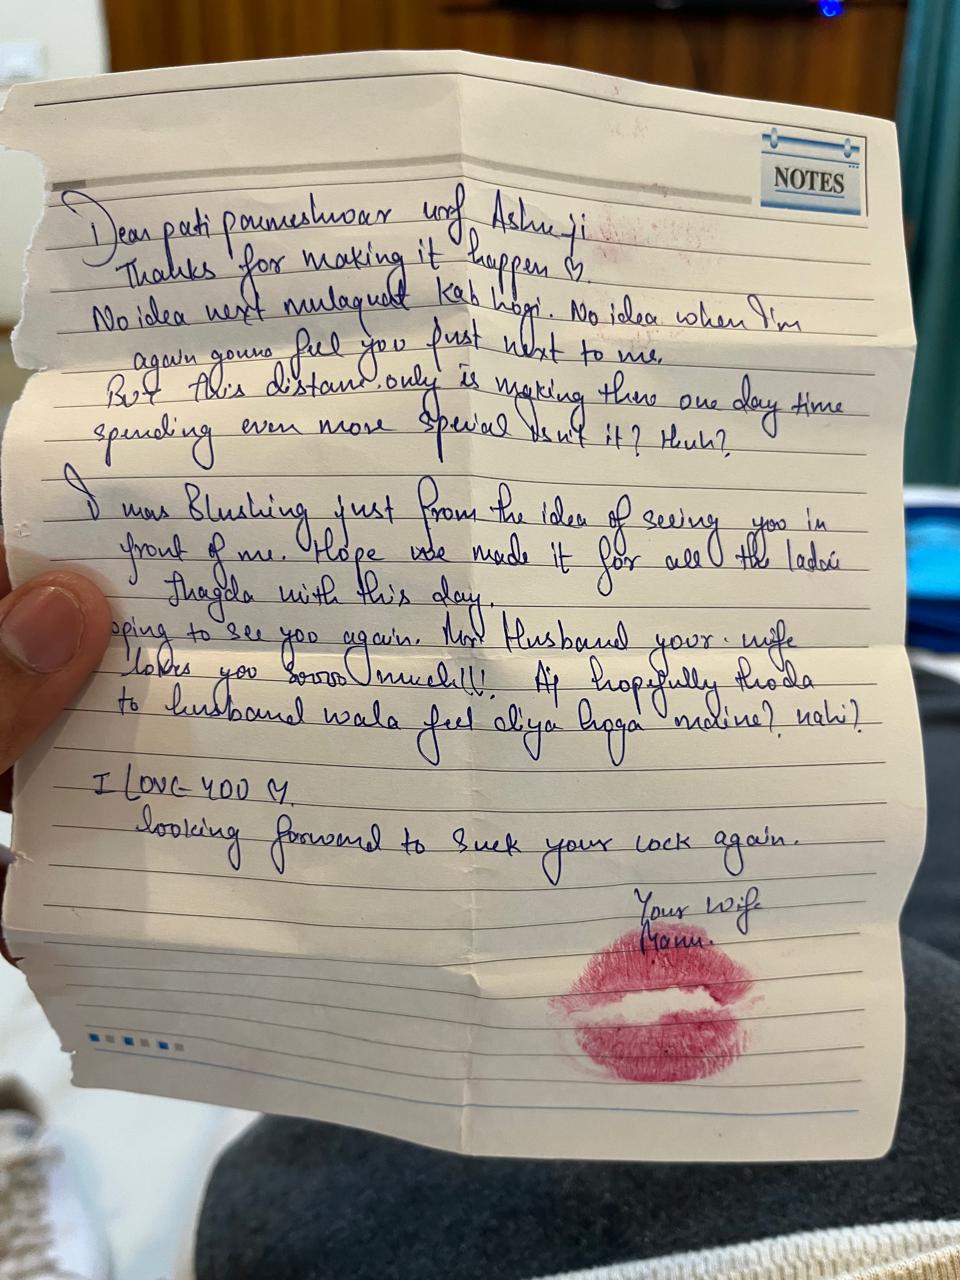 NOTES
Dear pati parmeshwar urf Ashu ji
Thanks for making it happen ♡.
No idea next mulaquat kab hogi. No idea when I'm
again gonna feel you just next to me.
But this distance only is making these one day time
spending even more special isn't it? Huh?
I was Blushing just from the idea of seeing you in
front of me. Hope we made it for all the ladai
jhagda with this day.
oping to see you again. Husband your wife
loves you soooo much!!! Aj hopefully thoda
to husband wala feel diya hoga maine? nahi?
I LOVE YOU ♡.
looking forward to suck your cock again.
Your wife